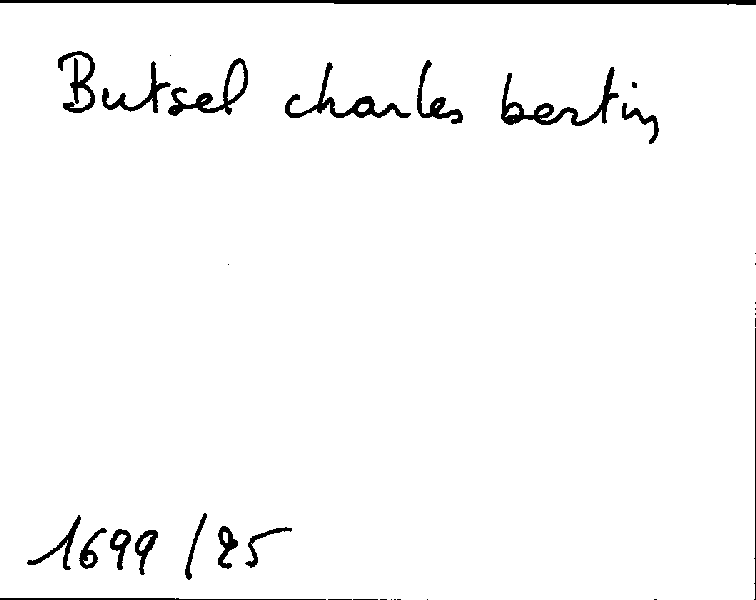 Butsel charles bertin
1699 / 25